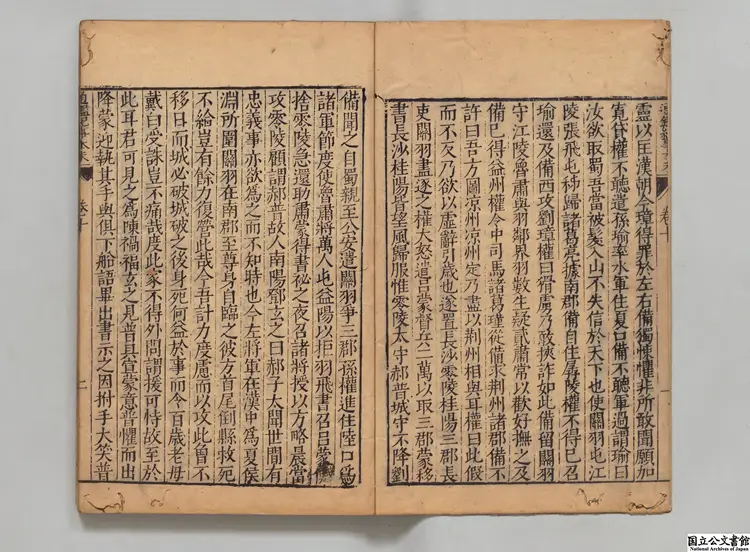 靈以匡漢朝今璋得罪於左右備獨悚懼非所敢聞願加
寬貸權不聽遣孫瑜率水軍住夏口備不聽軍過謂瑜曰
汝欲取蜀吾當被髮入山不失信於天下也使關羽屯江
陵張飛屯秭歸諸葛亮據南郡備自住孱陵權不得已召
瑜還及備西攻劉璋權曰猾虜乃敢挾詐如此備留關羽
守江陵魯肅與羽鄰界羽數生疑貳肅常以歡好撫之及
備已得益州權令中司馬諸葛瑾從備求荆州諸郡備不
許曰吾方圖凉州凉州定乃盡以荆州相與耳權曰此假
而不反乃欲以虛辭引歲也遂置長沙零陵桂陽三郡長
吏關羽盡逐之權大怒遣呂蒙督兵二萬以取三郡蒙移
書長沙桂陽皆望風歸服惟零陵太守郝普城守不降劉
備聞之自蜀親至公安遣關羽爭三郡孫權進住陸口爲
諸軍節度使魯肅將萬人屯益陽以拒羽飛書召呂蒙使
捨零陵急還助肅蒙得書祕之夜召諸將授以方略晨當
攻零陵顧謂郝普故人南陽鄧玄之曰郝子太聞世間有
忠義事亦欲爲之而不知時也今左將軍在漢中爲夏侯
淵所圍關羽在南郡至尊身自臨之彼方首尾倒縣救死
不給豈有餘力復營此哉今吾計力度慮而以攻此曾不
移日而城必破城破之後身死何益於事而令百歲老母
戴白受誅豈不痛哉度此家不得外問謂援可恃故至於
此耳君可見之爲陳禍福玄之見普具宣蒙意普懼而出
降蒙迎執其手與俱下船語畢出書示之因拊手大笑普
卷十
二
国立公文書館
National Archives of Japan